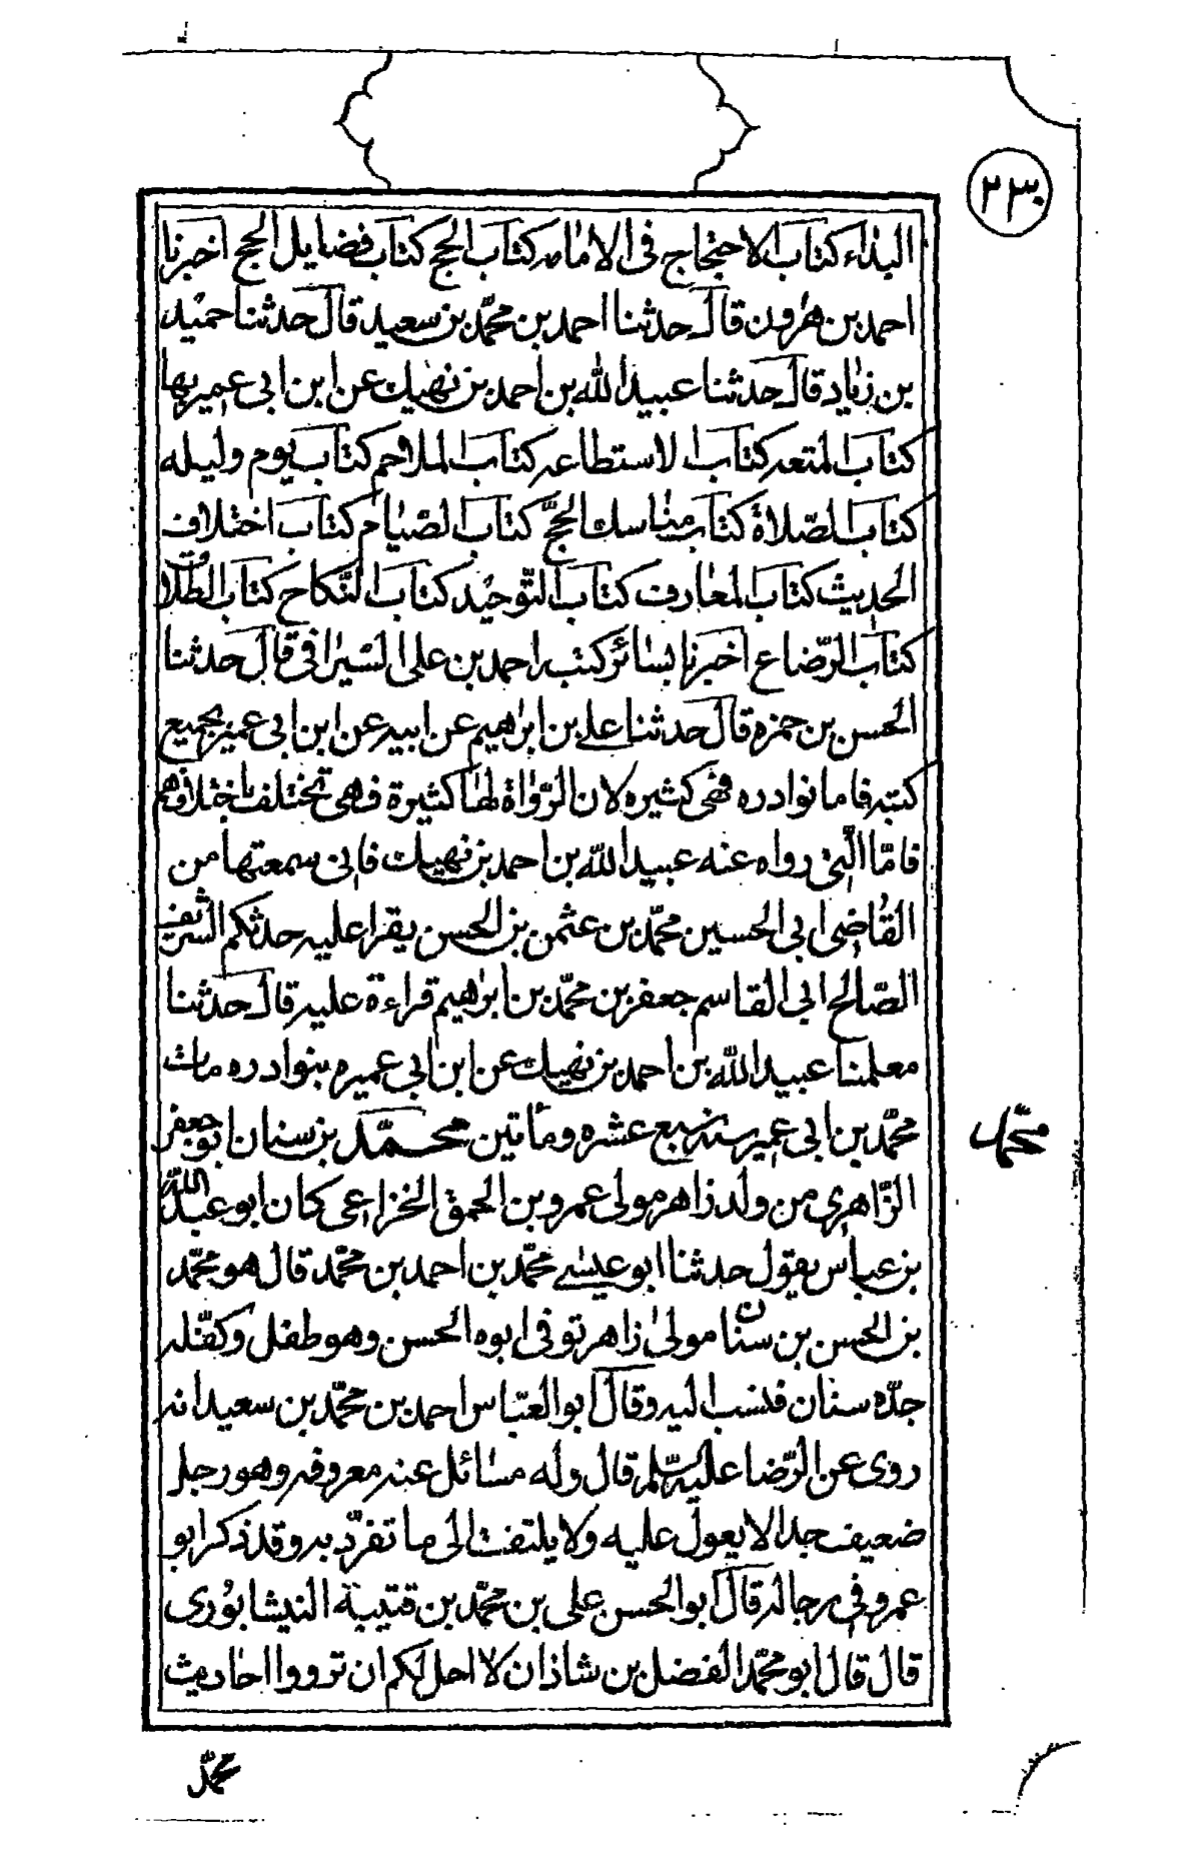 ٢٣٠
البداء كتاب الاحتجاج فى الامامه كتاب الحج كتاب فضايل الحج اخبرنا
احمد بن هرون قال حدثنا احمد بن محمّد بن سعيد قال حدثنا حميد
بن زياد قال حدثنا عبيد الله بن احمد بن نهيك عن ابن ابى عمير بها
كتاب المتعه كتاب الاستطاعه كتاب الملاحم كتاب يوم وليله
كتاب الصّلاة كتاب مناسك الحجّ كتاب الصّيام كتاب اختلاف
الحديث كتاب المعارف كتاب التّوحيد كتاب النّكاح كتاب الطّلاق
كتاب الرّضاع اخبرنا بسائر كتبه احمد بن على السّيرافى قال حدثنا
الحسن بن حمزه قال حدثنا على بن ابرهيم عن ابيه عن ابن ابى عمير بجميع
كتبه فاما نوادره فهى كثيره لان الرّواة لها كثيرة فهى تختلف باختلافهم
فامّا الّتى رواه عنه عبيد الله بن احمد بن نهيك فانى سمعتها من
القاضى ابى الحسين محمّد بن عثمن بن الحسن يقرا عليه حدثكم الشّريف
الصّالح ابى القاسم جعفر بن محمّد بن ابرهيم قراءة عليه قال حدثنا
معلمنا عبيد الله بن احمد بن نهيك عن ابن ابى عميره بنوادره مات
محمّد بن ابى عمير سنه سبع عشره ومأتين محمّد بن سنان ابو جعفر
محمّد
الزّاهرى من ولد زاهر مولى عمرو بن الحمق الخزاعى كان ابو عبد الله
بن عياس يقول حدثنا ابو عيسى محمّد بن احمد بن محمّد قال هو محمّد
بن الحسن بن سنان مولى زاهر توفى ابوه الحسن وهو طفل وكفّله
جدّه سنان فنسب اليه وقال ابو العبّاس احمد بن محمّد بن سعيد انه
روى عن الرّضا عليه السّلم قال وله مسائل عنه معروفه وهو رجل
ضعيف جدا لا يعول عليه ولا يلتفت الى ما تفرّد به وقد ذكر ابو
عمرو فى رجاله قال ابو الحسن على بن محمّد بن قتيبة النيشابورى
قال قال ابو محمّد الفضل بن شاذان لا احل لكم ان ترووا احاديث
محمّد